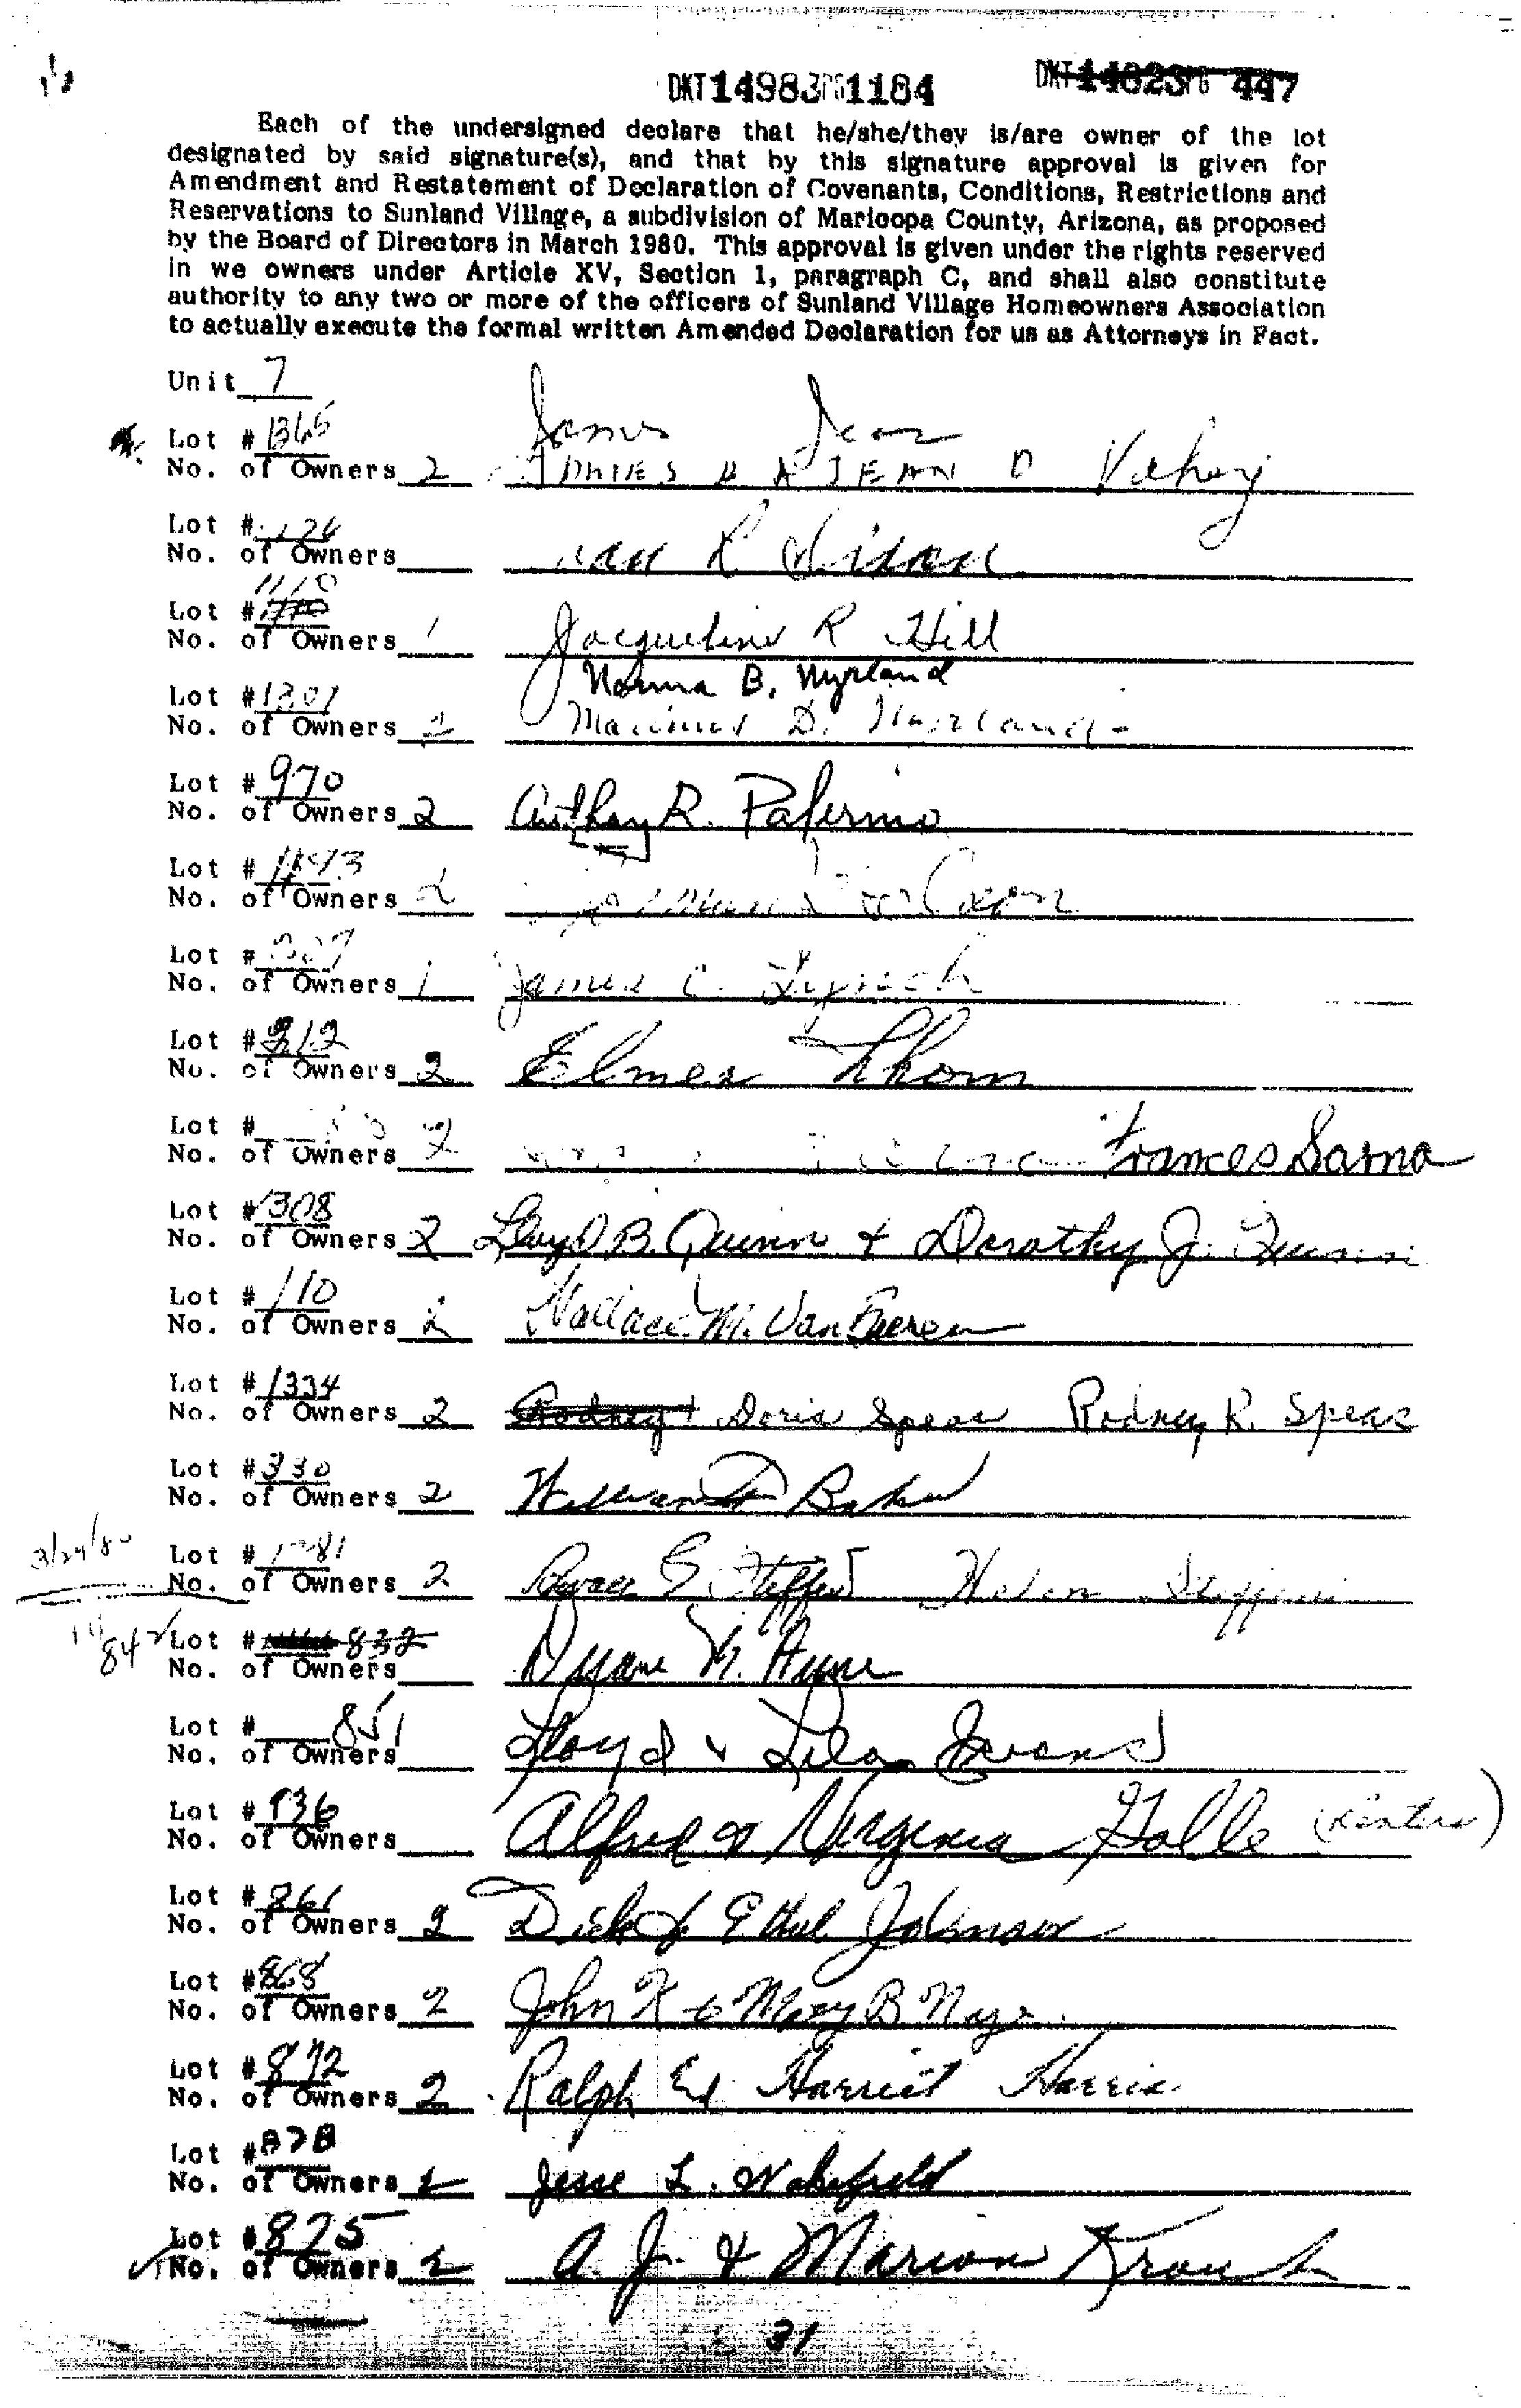 DKT 14983 PG 1184 DKT 14823 PG 447
Each of the undersigned declare that he/she/they is/are owner of the lot
designated by said signature(s), and that by this signature approval is given for
Amendment and Restatement of Declaration of Covenants, Conditions, Restrictions and
Reservations to Sunland Village, a subdivision of Maricopa County, Arizona, as proposed
by the Board of Directors in March 1980. This approval is given under the rights reserved
in we owners under Article XV, Section 1, paragraph C, and shall also constitute
authority to any two or more of the officers of Sunland Village Homeowners Association
to actually execute the formal written Amended Declaration for us as Attorneys in Fact.
Unit 7
Lot # 1365 James Jean
No. of Owners 2 JAMES & JEAN D Vahey
Lot #
No. of Owners
Lot #
No. of Owners 1 Jacqueline R Hill
Norma B. Myrland
Lot # 1301
No. of Owners 2 D. Myrland
Lot # 970
No. of Owners 2 Anthony R. Palermo
Lot #
No. of Owners 2
Lot #
No. of Owners 1 James C. Lynch
Lot # 212
No. of Owners 2 Elmer Thom
Lot #
No. of Owners 2 Frances Sarna
Lot # 1308
No. of Owners 2 Lloyd B. Quinn & Dorothy J. Quinn
Lot # 110
No. of Owners 2 Wallace M. Van
Lot # 1334
No. of Owners 2 Rodney & Doris Spear Rodney R. Spear
Lot # 330
No. of Owners 2 William Baker
3/24/80 Lot #
No. of Owners 2 Helen
842 Lot # 832
No. of Owners Duane M. Aune
Lot # 851
No. of Owners Lloyd & Lila Evans
Lot # 836
No. of Owners Alfred & Virginia Golle
Lot # 861
No. of Owners 2 Dick & Ethel Johnson
Lot # 868
No. of Owners 2 John K & Mary B
Lot # 872
No. of Owners 2 Ralph & Harriet Harris
Lot # 878
No. of Owners 2 Jesse L. Wakefield
Lot # 875
No. of Owners 2 A. J. & Marion
31